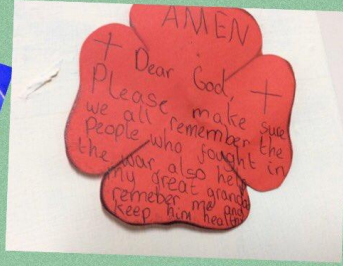 AMEN
Dear God,
Please make sure
we all remember the
people who fought in
the war also help
my great grandad
remeber me and
keep him healthy